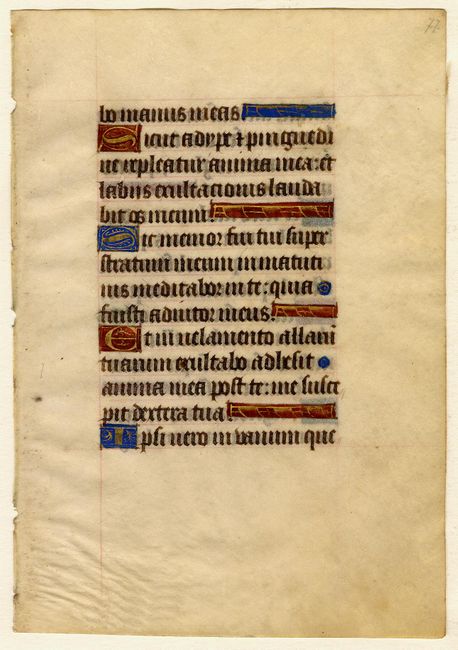 77
bo manus meas
Sicut adype ⁊ pinguedi
ne repleatur anima mea: et
labiis exultationis lauda
bit os meum.
Sic memor fui tui super
stratum meum in matuti
nis meditabor in te: quia
fuisti adiutor meus.
Et in uelamento allarū
tuarum exultabo adhesit
anima mea post te: me susce
pit dextera tua.
Ipsi uero in vanum que